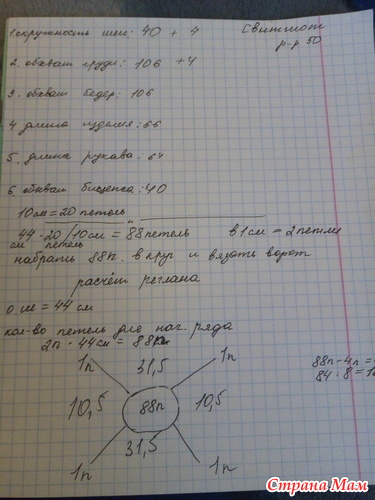 1. окружность шеи: 40 + 4
Свитшот
р-р 50
2. обхват груди: 106 +4
3. обхват бедер: 106
4 длина изделия: 66
5. длина рукава: 64
6. обхват бицепса: 40
10 см = 20 петель
44 · 20 / 10 см = 88 петель в 1 см = 2 петли
см петель
набрать 88 п. в круг и вязать ворот
расчёт реглана
о.ш = 44 см
кол-во петель для нач. ряда
2п · 44 см = 88 п
1п 31,5 1п
88п - 4п =
84 : 8 = 1
10,5 88п 10,5
31,5
1п 1п
Страна Мам